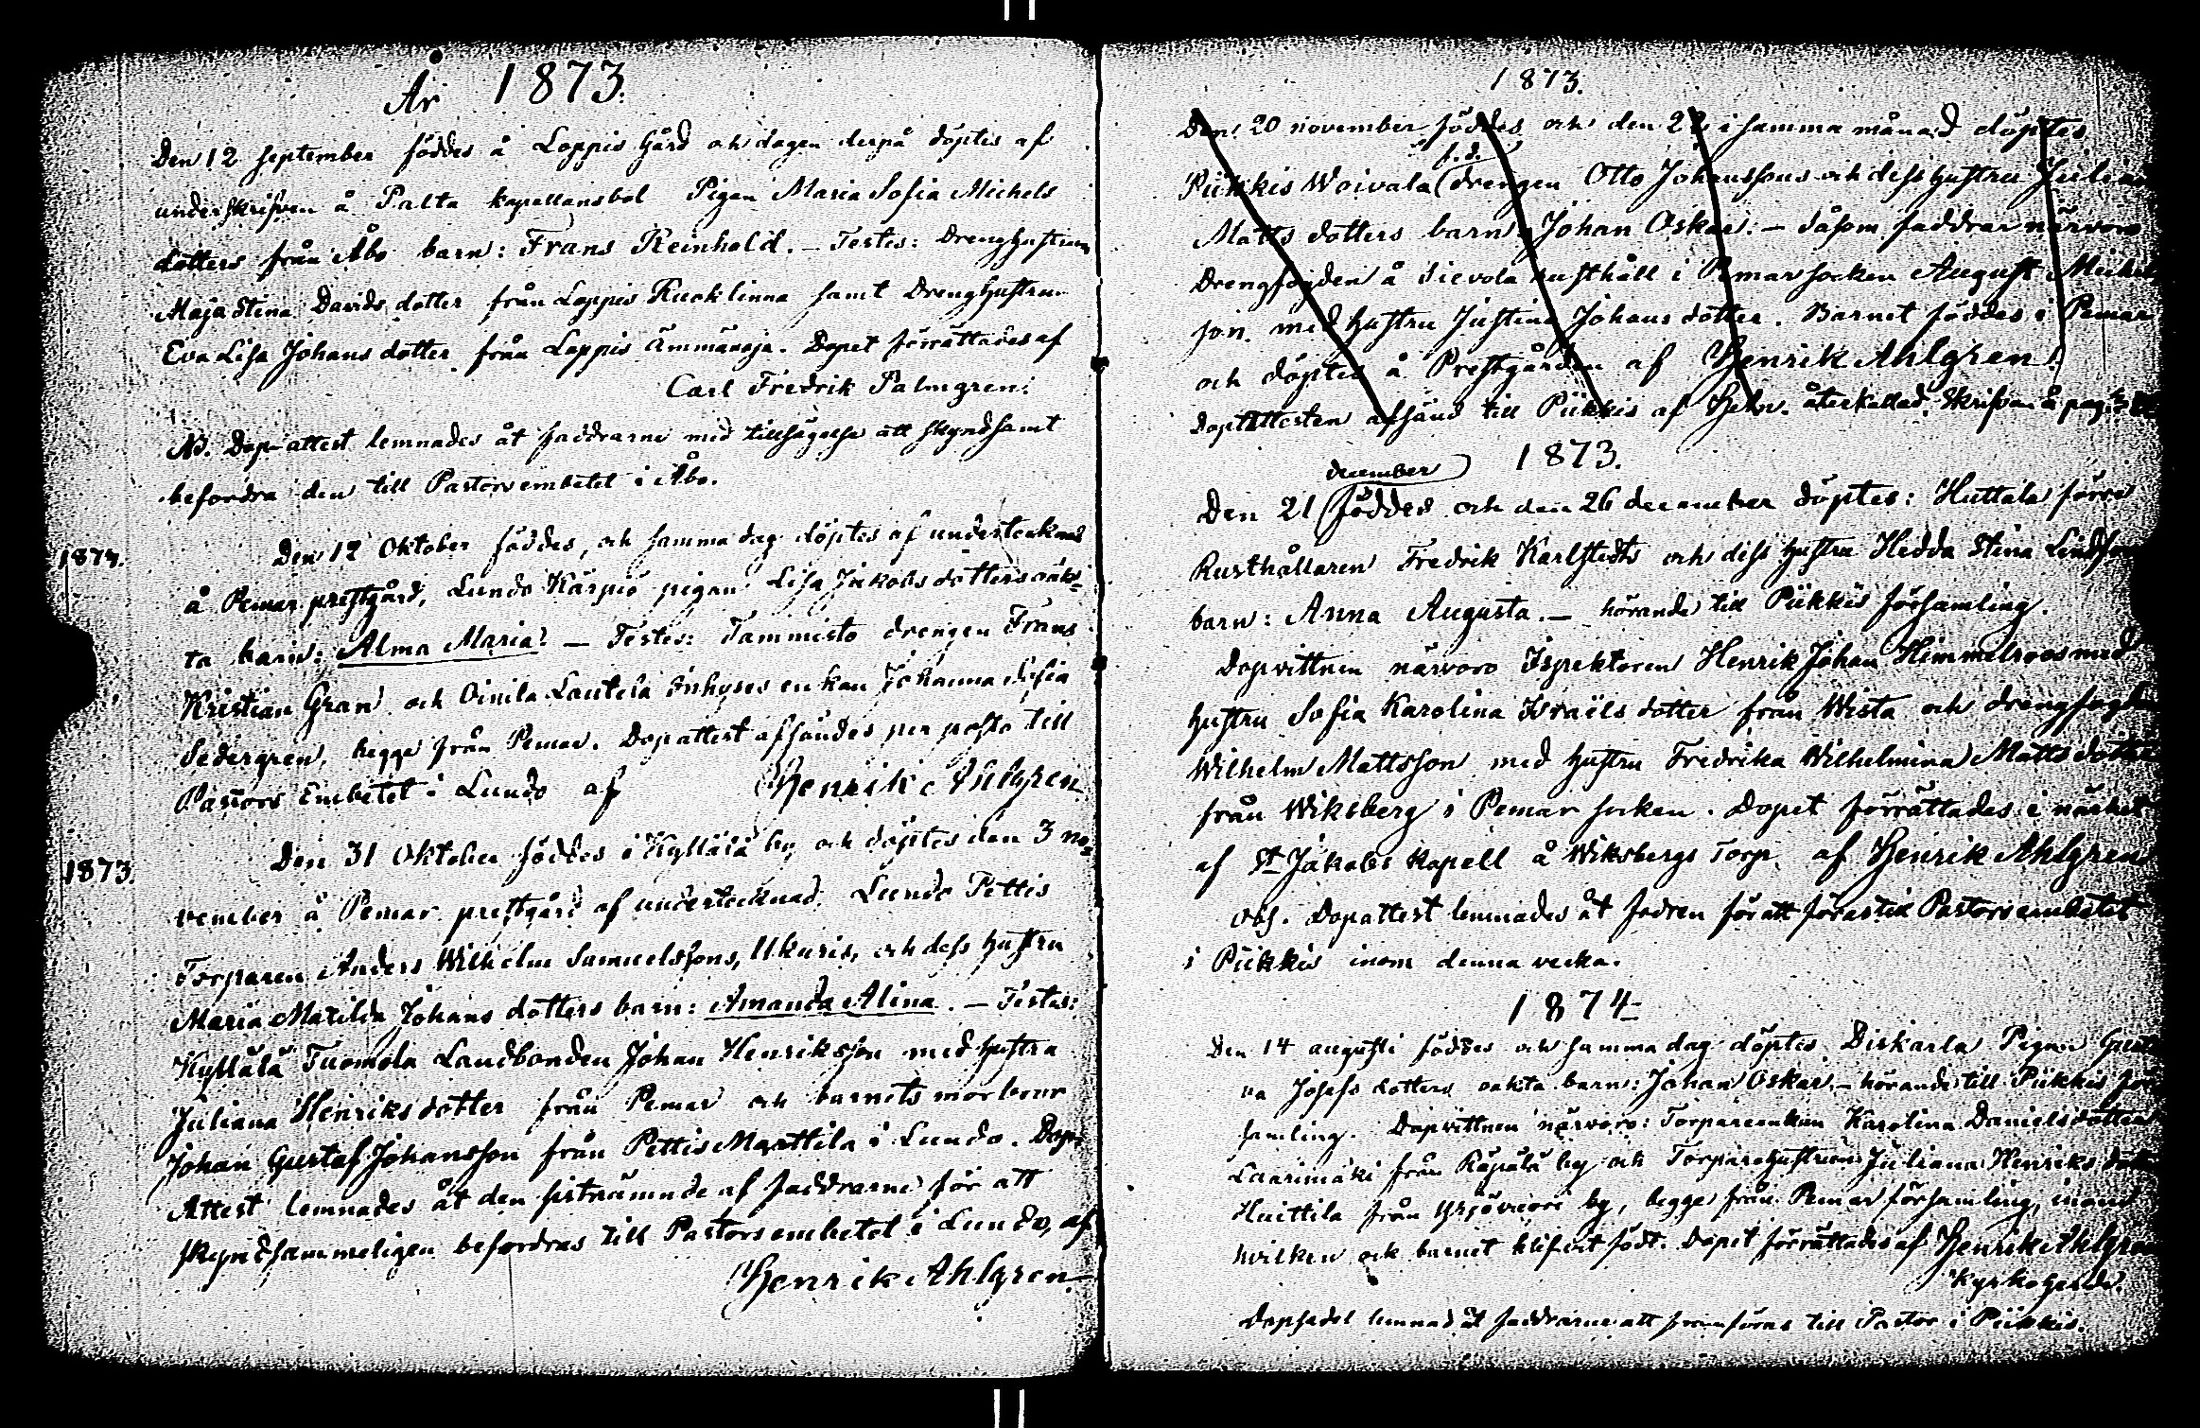 År 1873.
Den 12 september föddes å Loppis Gård och dagen derpå döptes af
underskrifven å Palta kapellansbol Pigan Maria Sofia Michels
dotters från Åbo barn: Frans Reinhold. – Testes: Drenghustrun
Maja Stina Davids dotter från Loppis Kuoklinna samt Drenghustrun
Eva Lisa Johans dotter från Loppis Ämmänoja. Dopet förrättades af
Carl Fredrik Palmgren.
NB. Dop-attest lemnades åt faddrarne med tillsägelse att skyndsamt
befordra den till Pastorsembetet i Åbo.
1873.
Den 12 Oktober föddes, och samma dag döptes af undertecknad
å Pemar prestgård, Lundo Kärpiö pigan Lisa Jakobs dotters oäk-
ta barn: Alma Maria. – Testes: Tammisto drengen Frans
Kristian Gran och Oinila Lautela Inhyses enkan Johanna Sofia
Sedergren, begge från Pemar. Dopattest afsändes per posto till
Pastors Embetet i Lundo af Henrik Ahlgren
1873.
Den 31 Oktober föddes i Kyllälä by och döptes den 3 no-
vember å Pemar prestgård af undertecknad. Lundo Pettis
Torparen Anders Wilhelm Samuelssons, Ukuris, och dess hustru
Maria Matilda Johans dotters barn: Amanda Alina. – Testes:
Kyllälä Tuomola Landbonden Johan Henriksson med hustru
Juliana Henriks dotter från Pemar och barnets morbror
Johan Gustaf Johansson från Pettis Marttila i Lundo. Dop-
Attest lemnades åt den sistnämnde af faddrarne för att
skyndsammeligen befordras till Pastors embetet i Lundo, af
Henrik Ahlgren
1873.
Den 20 november föddes och den 22 i samma månad döptes
f.d.
Piikkis Woivala drengen Otto Johanssons och dess hustru Julian
Matts dotters barn Johan Oskar. – Såsom faddrar närvoro
Drengfogden å Sievola rusthåll i Pemar socken August Michels
son med hustru Justina Johans dotter. Barnet föddes i Pemar
och döptes å Prestgården af Henrik Ahlgren.
Dopattesten afsänd till Piikkis af återkallad. Skrifven å pag.
1873.
december
Den 21 föddes och den 26 december döptes: Huttala förre
Rusthållaren Fredrik Karlstedts och dess hustru Hedda Stina
barn: Anna Augusta. – hörande till Piikkis församling.
Dopvittnen närvoro Ispektoren Henrik Johan Himmelroos med
hustru Sofia Karolina Israels dotter från Wista och drengfogden
Wilhelm Mattsson med hustru Fredrika Wilhelmina Matts dotter
från Wiksberg i Pemar socken. Dopet förrättades i närhet
af St Jakobs Kapell å Wiksbergs Torp af Henrik Ahlgren
Obs. Dopattest lemnades åt fadren för att företix Pastors embetet
i Piikkis inom denna vecka.
1874
Den 14 augusti föddes och samma dag döptes Diskarla Pigan Gusta
va Josefs dotters oäkta barn: Johan Oskar, – hörande till Piikkis för
samling. Dopvittnen närvoro: Torpareenkan Karolina Danielsdotter
Laarinmäki från Räpälä by och Torparehustrun Juliana Henriks dotter
Huittila från Yrjövuori by, begge från Pemar församling, inom
hvilken ock barnet blifvit född. Dopet förrättades af Henrik Ahlgren
Kyrkoherde.
Dopsedel lemnad åt faddrarne att framföras till Pastor i Piikkis.